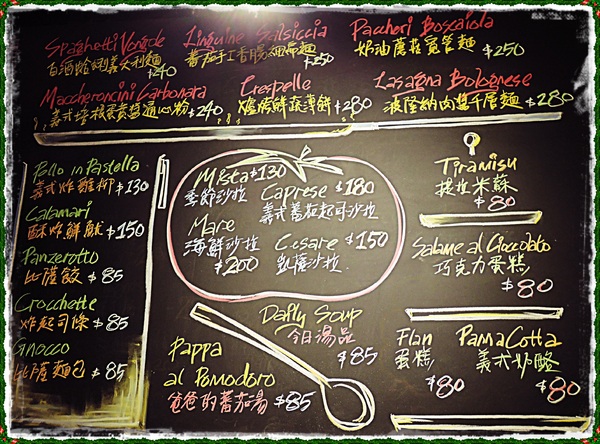 Spaghetti Vongole
白酒蛤蜊義大利麵 $240
Linguine Salsiccia
番茄手工香腸細扁麵 $250
Paccheri Boscaiola
奶油蘑菇寬管麵 $250
Maccheroncini Carbonara
義式培根蛋黃醬通心粉 $240
Crespelle
爐烤鮮蔬薄餅 $280
Lasagna Bolognese
波隆納肉醬千層麵 $280
Pollo in Pastella
義式炸雞柳 $130
Calamari
酥炸鮮魷 $150
Panzerotto
比薩餃 $85
Crocchette
炸起司條 $85
Gnocco
比薩麵包 $85
Mista $130
季節沙拉
Caprese $180
義式蕃茄起司沙拉
Mare
海鮮沙拉
$200
Cesare $150
凱薩沙拉
Daily Soup
今日湯品
$85
Pappa
al Pomodoro
爸爸的蕃茄湯 $85
Tiramisu
提拉米蘇
$80
Salame al Cioccolato
巧克力蛋糕
$80
Flan
蛋糕
$80
PannaCotta
義式奶酪
$80